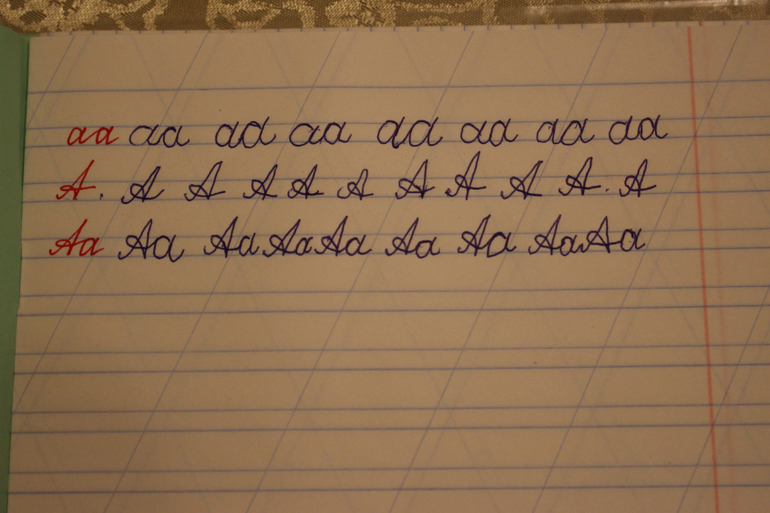 аа аа аа аа аа аа аа аа
А. А А А А А А А А А. А
Аа Аа Аа Аа Аа Аа Аа Аа Аа